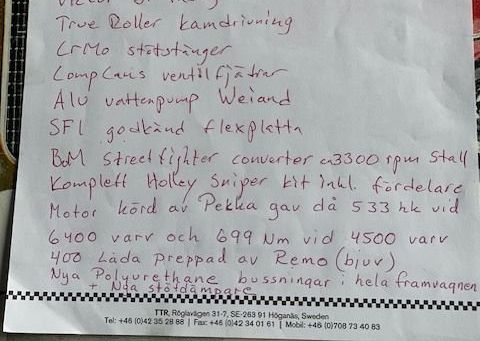 True Roller kamdrivning
CrMo stötstänger
CompCams ventilfjädrar
Alu vattenpump Weiand
SFI godkänd flexplatta
B&M streetfighter converter ca3300 rpm stall
Komplett Holley Sniper kit inkl. fördelare
Motor körd av Pekka gav då 533 hk vid
6400 varv och 699 Nm vid 4500 varv
400 Låda preppad av Remo (bjuv)
Nya Polyurethane bussningar i hela framvagnen
+ Nya stötdämpare
TTR, Röglavägen 31-7, SE-263 91 Höganäs, Sweden
Tel: +46 (0)42 35 28 88 | Fax: +46 (0)42 34 01 61 | Mobil: +46 (0)708 73 40 83